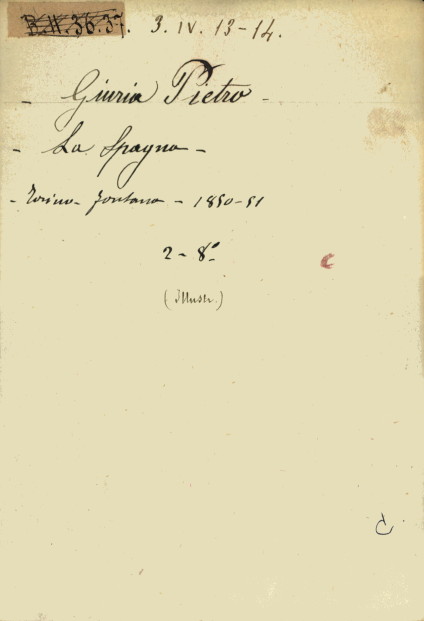 B. H. 36. 37. 3. IV. 13-14.
- Giuria Pietro -
- La Spagna -
- Torino - Fontana - 1850-51
2 - 8º
(Illustr.)
C
C